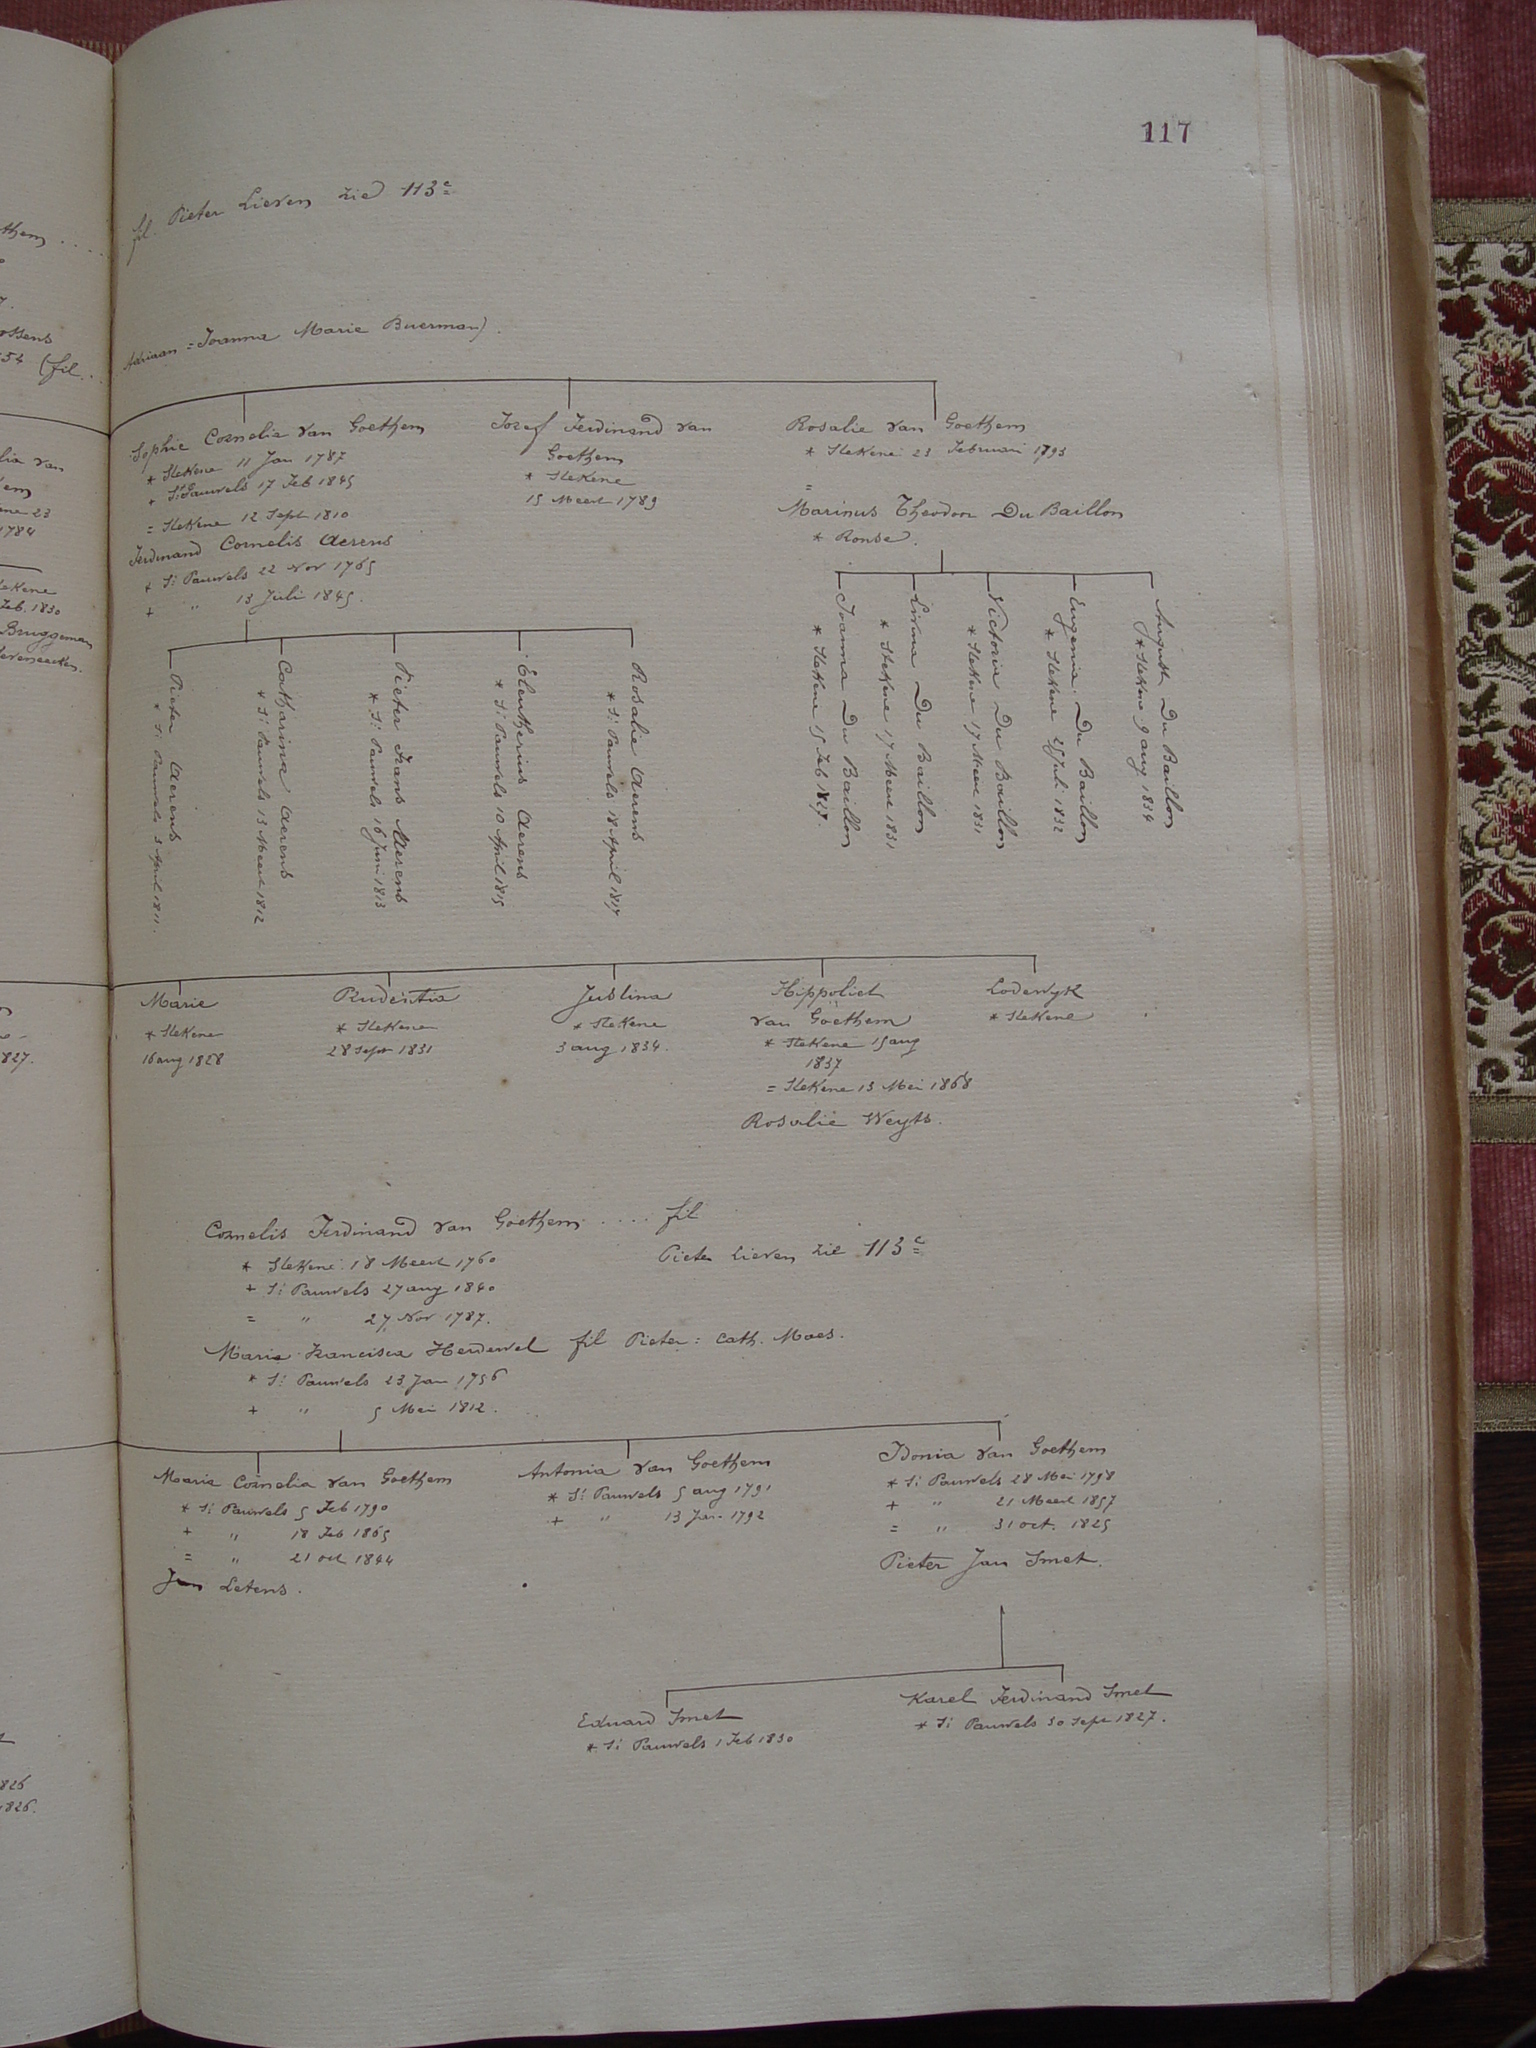 117
them ....
fil. Pieter Lieven zie 113c
54 (fil. .
Adriaan = Joanna Marie Buerman).
Sophie Cornelia van Goethem
* Stekene 11 Jan 1787
+ St Pauwels 17 Feb 1845
= Stekene 12 Sept 1810
Ferdinand Cornelis Aerens
* St Pauwels 22 Nov 1765
+ " 13 Juli 1845.
Jozef Ferdinand van
Goethem
* Stekene
15 Meert 1789
Rosalie van Goethem
* Stekene 23 Februari 1793
=
Marinus Theodoor Du Baillon
* Ronse.
1784
Feb. 1830
Bruggeman
Pieter Aerens
* St Pauwels 3 April 1811.
Catharina Aerens
* St Pauwels 13 Meert 1812
Pieter Frans Aerens
* St Pauwels 16 Juni 1813
Eleutherius Aerens
* St Pauwels 10 April 1815
Rosalie Aerens
* St Pauwels 18 April 1817
Joanna Du Baillon
* Stekene 15 Feb 1827.
Livina Du Baillon
* Stekene 17 Meert 1831
Victoria Du Baillon
* Stekene 17 Meert 1831
Eugenia Du Baillon
* Stekene 25 Juli 1832
August Du Baillon
* Stekene 9 aug 1834
1827.
Marie
* Stekene
16 aug 1828
Prudentia
* Stekene
28 Sept 1831
Justina
* Stekene
3 aug 1834.
Hippoliet
van Goethem
* Stekene 15 aug
1837
= Stekene 13 Mei 1868
Rosalie Weyts.
Lodewyk
* Stekene
Cornelis Ferdinand van Goethem .... fil
Pieter Lieven zie 113c
* Stekene 18 Meert 1760
+ St Pauwels 27 aug 1840
= " 27 Nov 1787.
Marie Francisca Herdewel fil Pieter = Cath. Maes.
* St Pauwels 23 Jan 1756
+ " 5 Mei 1812.
Maria Cornelia van Goethem
* St Pauwels 5 Feb 1790
+ " 18 Feb 1865
= " 21 oct 1844
Jan Letens.
Antonia van Goethem
* St Pauwels 5 aug 1791
+ " 13 Jan 1792
Idonia van Goethem
* St Pauwels 28 Mei 1798
+ " 21 Meert 1857
= " 31 oct. 1825
Pieter Jan Smet.
Eduard Smet
* St Pauwels 1 Feb 1830
Karel Ferdinand Smet
* St Pauwels 30 Sept 1827.
1826
1826.